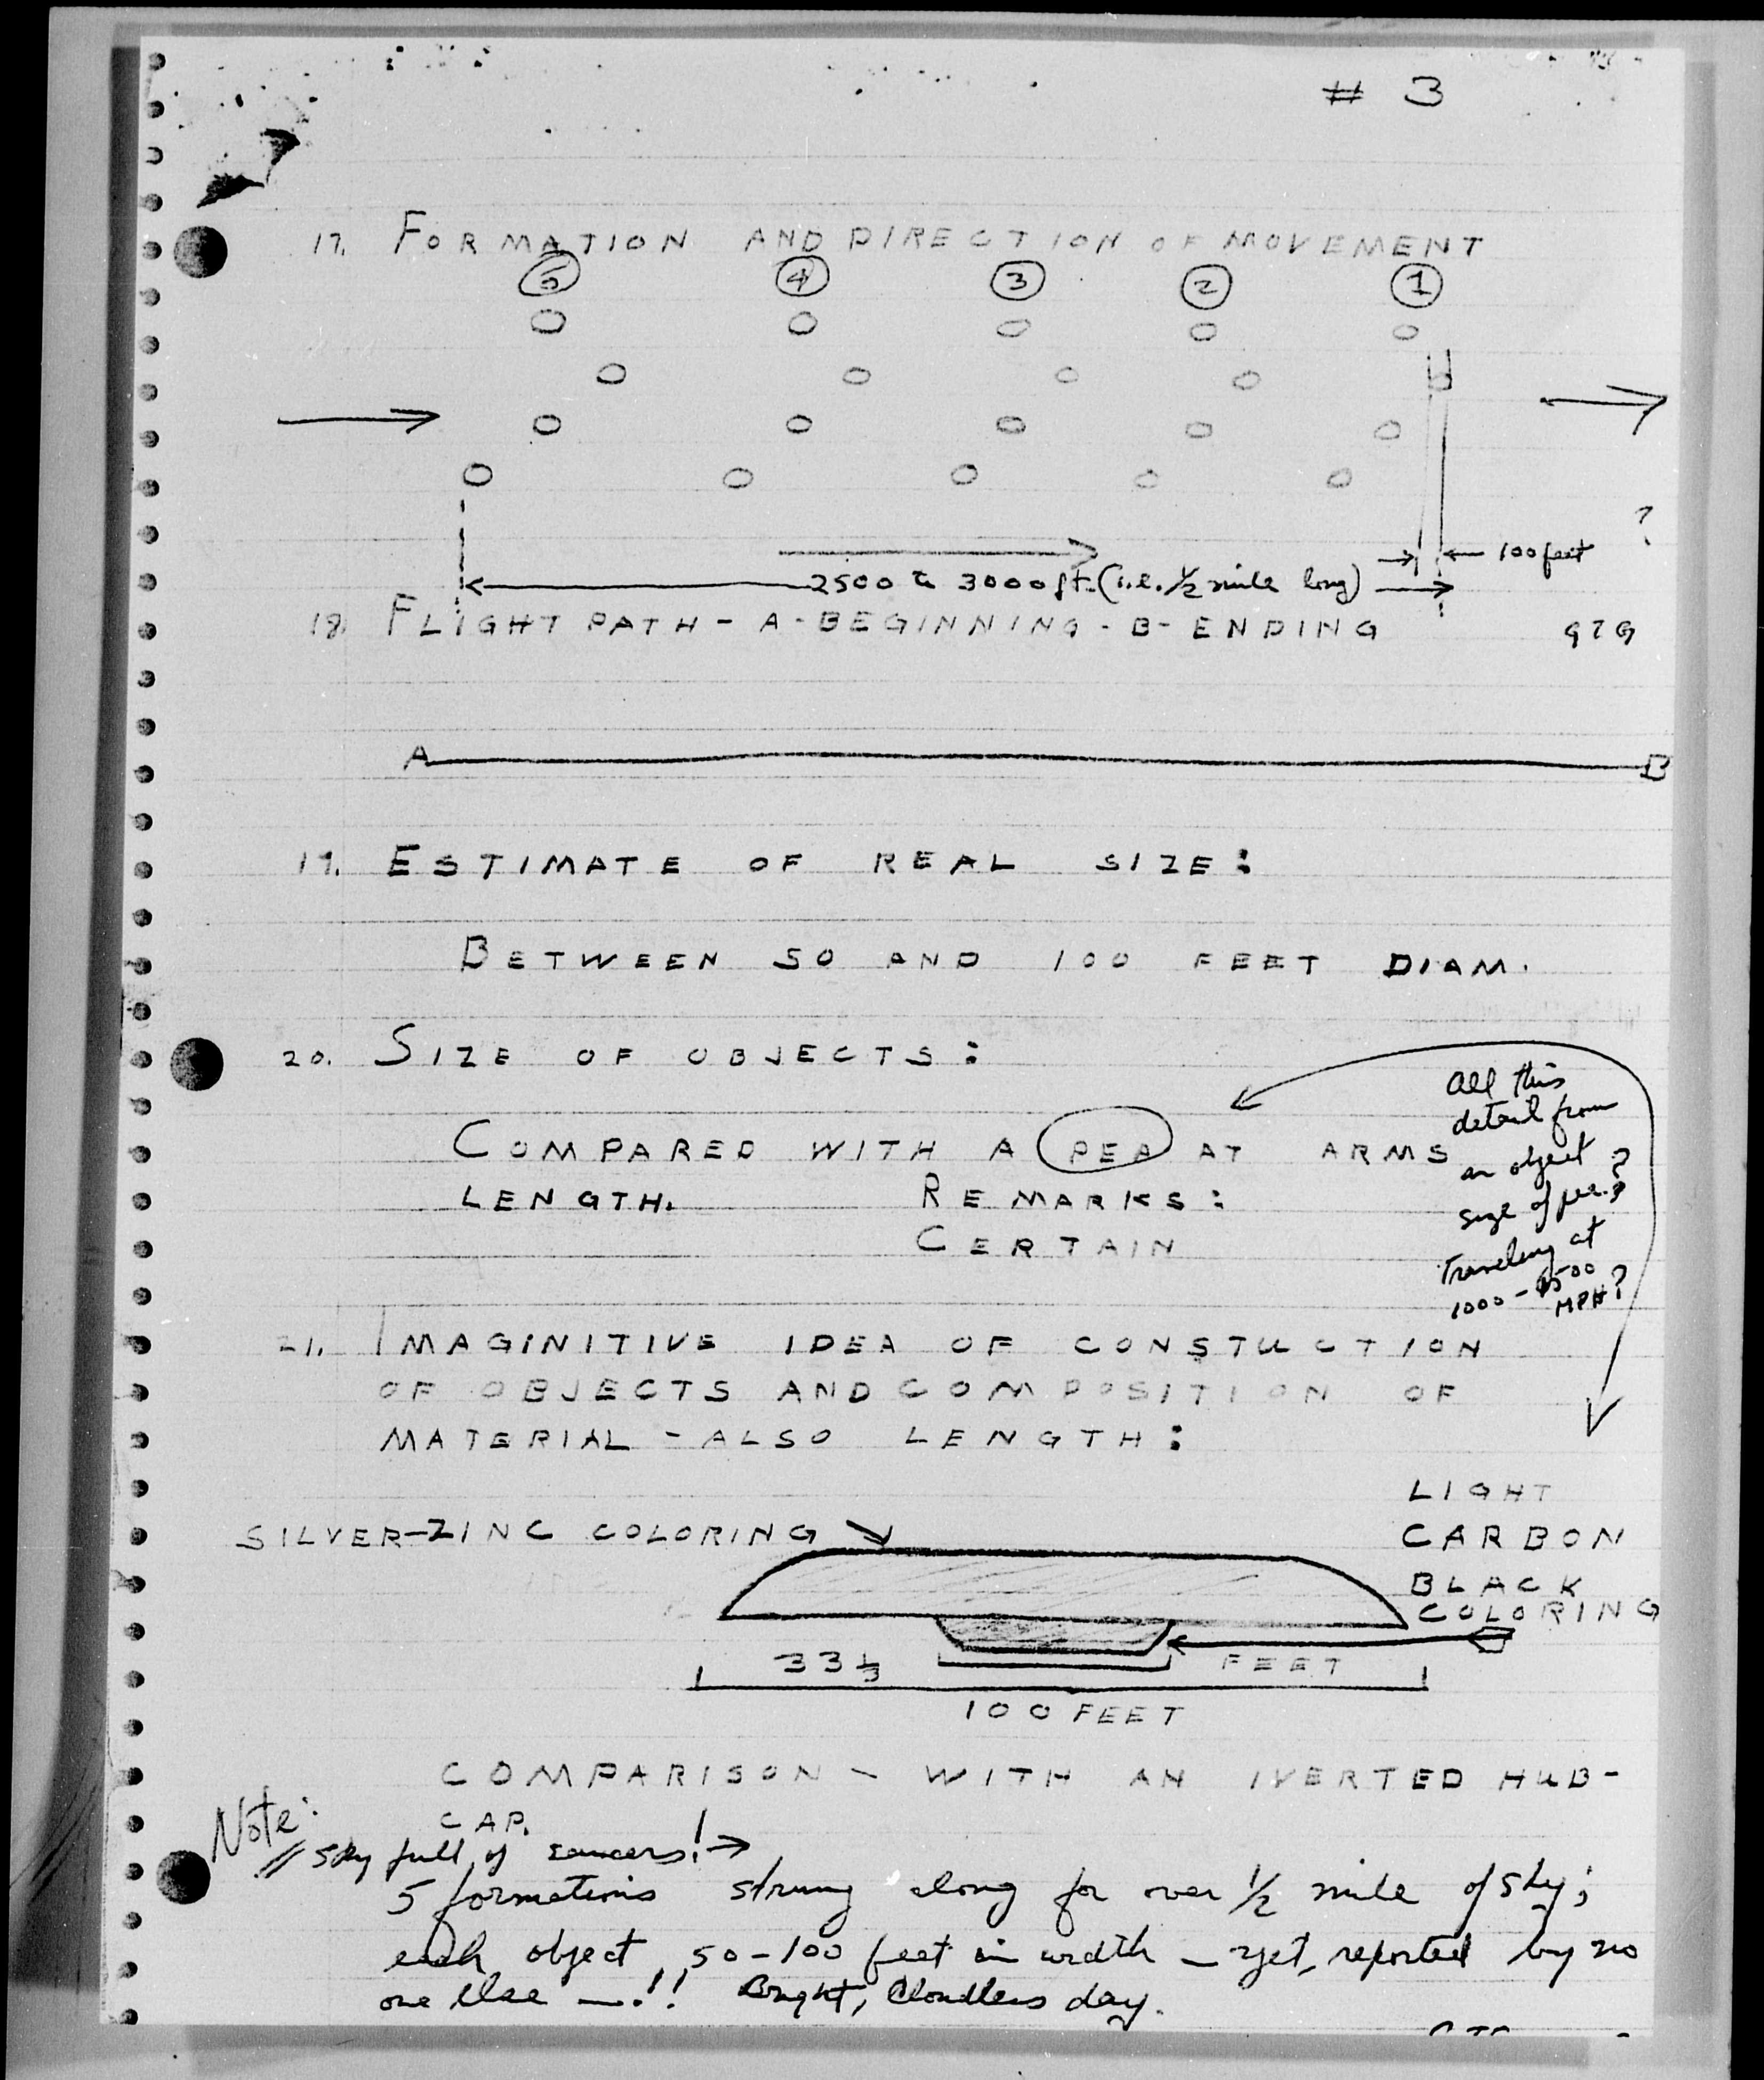 # 3
17. FORMATION AND DIRECTION OF MOVEMENT
5 4 3 2 1
?
100 feet
2500 to 3000 ft. (i.e. 1/2 mile long)
18. FLIGHT PATH - A - BEGINNING - B - ENDING
A B
19. ESTIMATE OF REAL SIZE:
BETWEEN 50 AND 100 FEET DIAM.
20. SIZE OF OBJECTS:
COMPARED WITH A PEA AT ARMS
LENGTH. REMARKS:
CERTAIN
All this
detail from
an object
size of pea??
Traveling at
1000 - 1500
MPH?
21. IMAGINITIVE IDEA OF CONSTUCTION
OF OBJECTS AND COMPOSITION OF
MATERIAL - ALSO LENGTH:
SILVER-ZINC COLORING
LIGHT
CARBON
BLACK
COLORING
33 1/3 FEET
100 FEET
COMPARISON - WITH AN IVERTED HUB-
CAP.
Note:
Sky full of saucers! →
5 formations strung along for over 1/2 mile of sky;
each object, 50-100 feet in width - yet, reported by no
one else -!! Bright, Cloudless day.